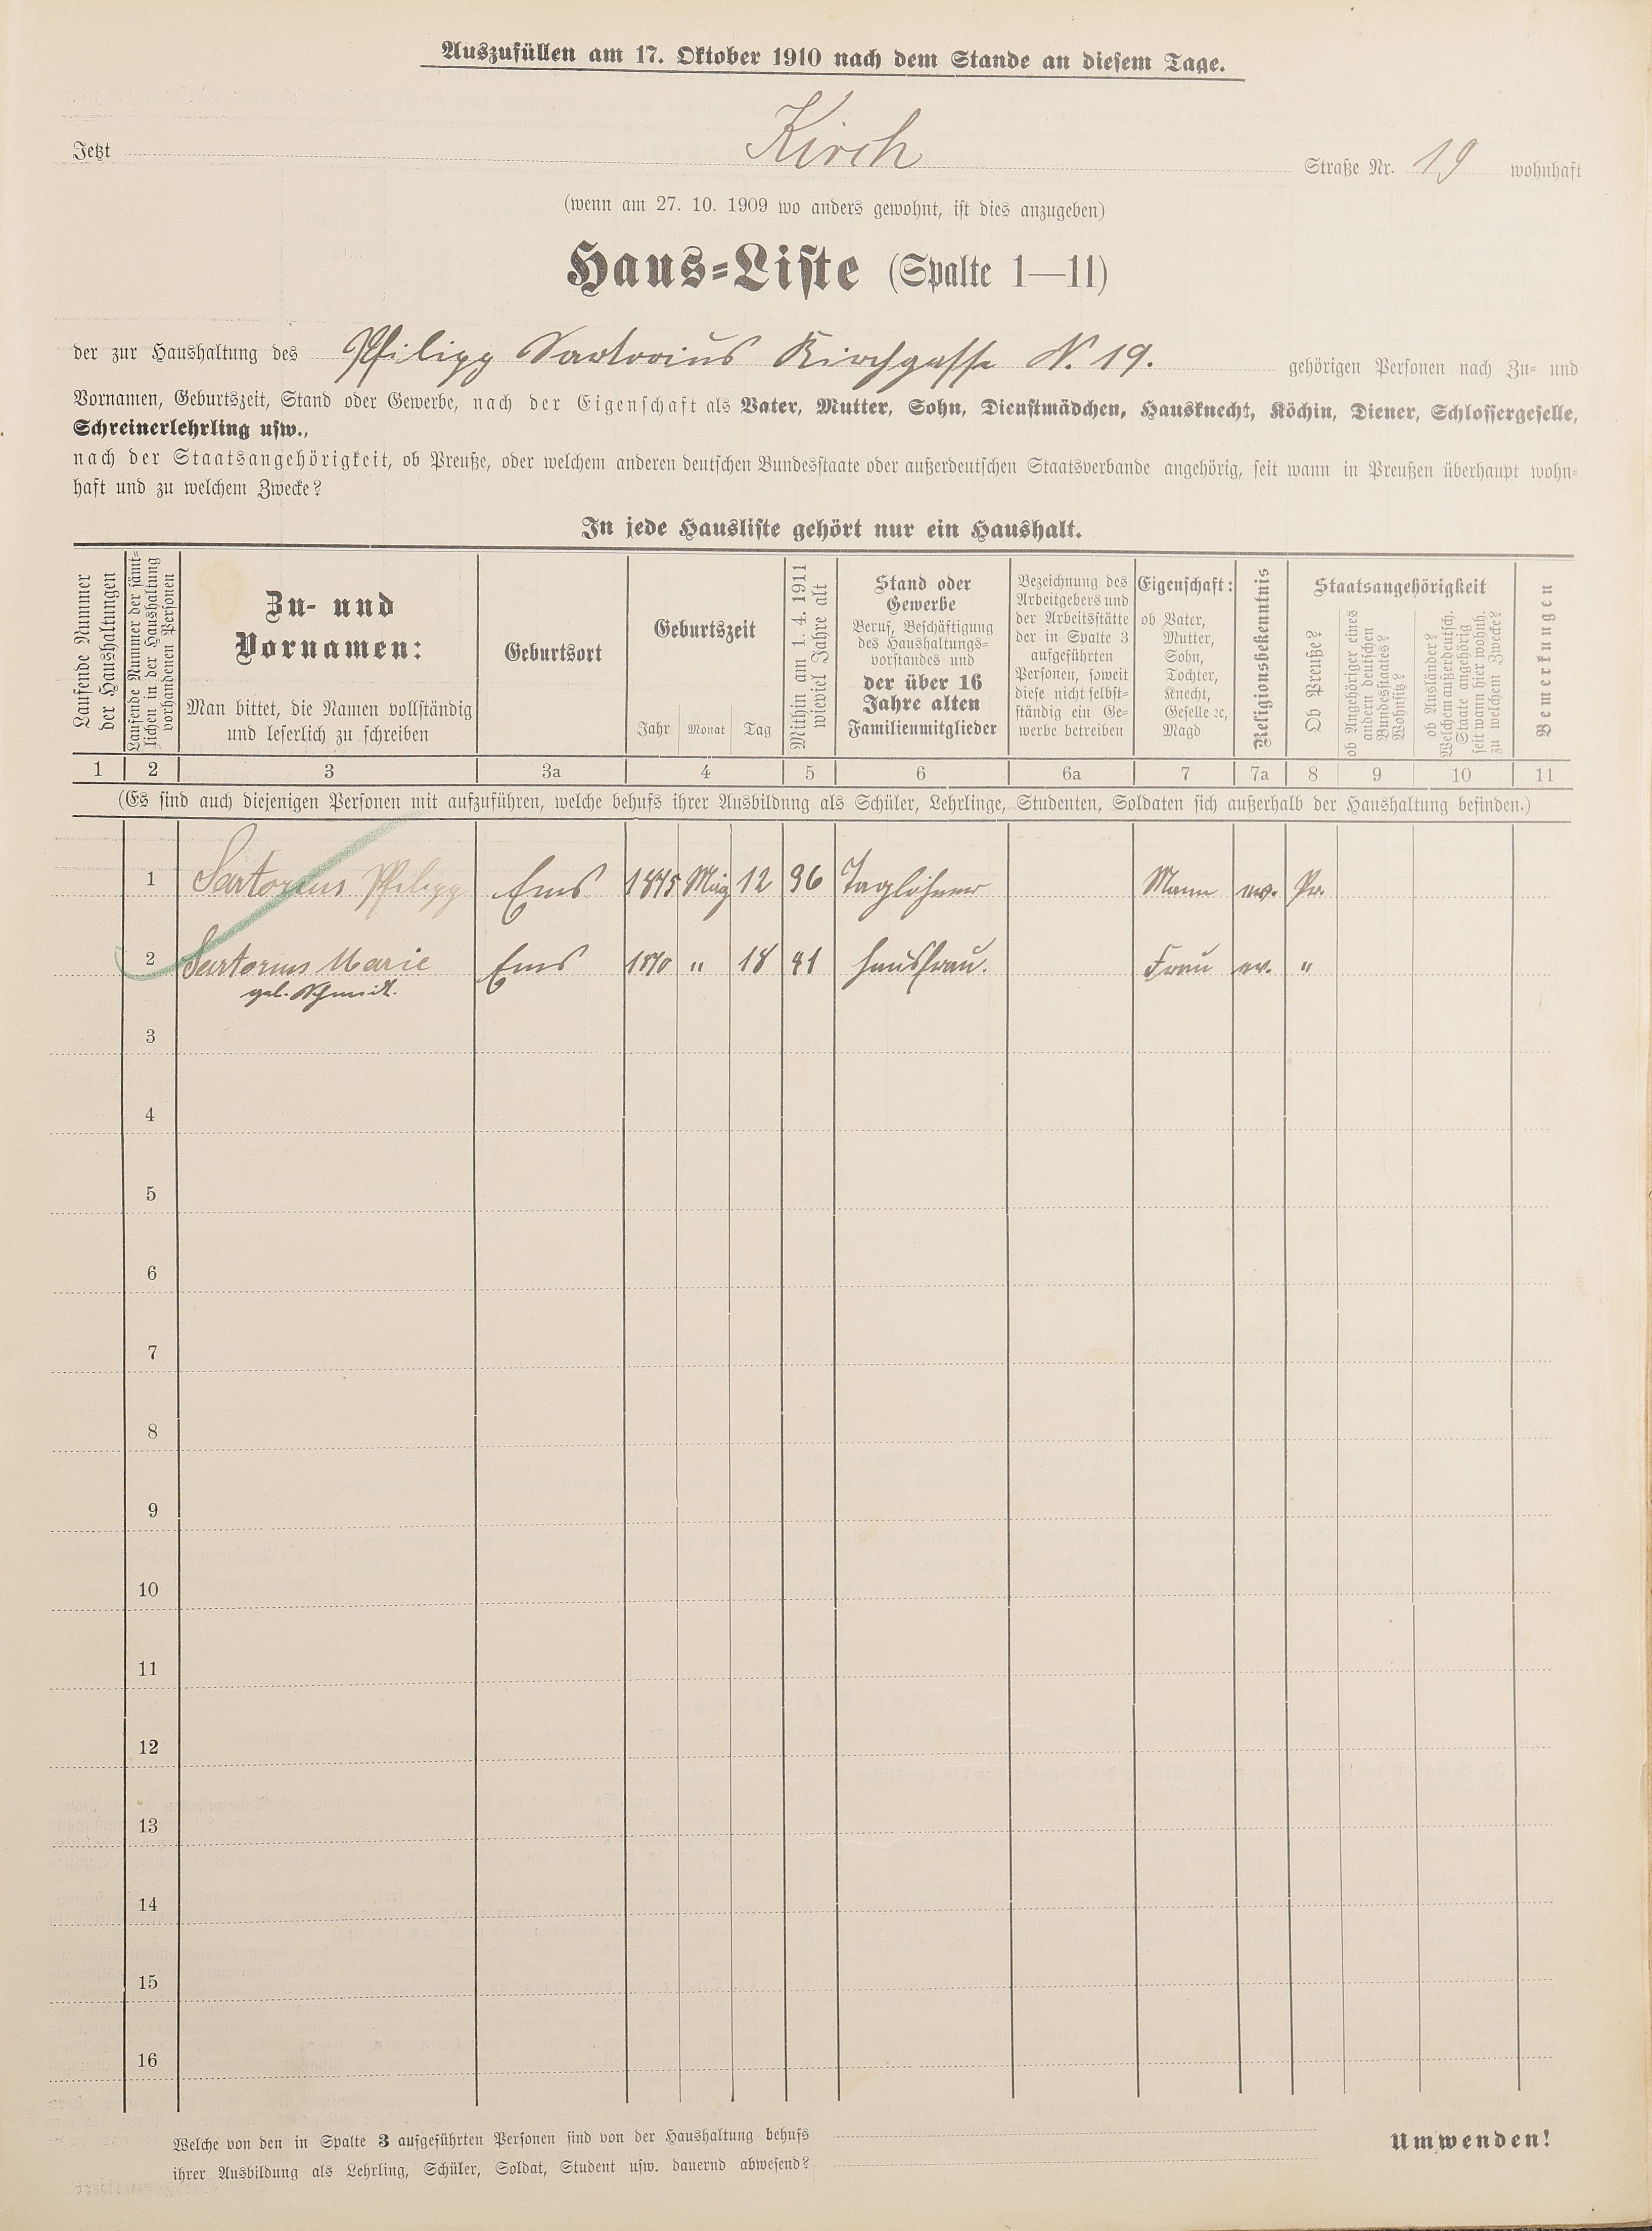 Auszufüllen am 17. Oktober 1910 nach dem Stande an diesem Tage.
Jetzt Kirch Straße Nr. 19 wohnhaft
(wenn am 27. 10. 1909 wo anders gewohnt, ist dies anzugeben)
Haus-Liste (Spalte 1—11)
der zur Haushaltung des Philipp Sartorius Kirchgasse N. 19. gehörigen Personen nach Zu- und
Vornamen, Geburtszeit, Stand oder Gewerbe, nach der Eigenschaft als Vater, Mutter, Sohn, Dienstmädchen, Hausknecht, Köchin, Diener, Schlossergeselle,
Schreinerlehrling usw.,
nach der Staatsangehörigkeit, ob Preuße, oder welchem anderen deutschen Bundesstaate oder außerdeutschen Staatsverbande angehörig, seit wann in Preußen überhaupt wohn-
haft und zu welchem Zwecke?
In jede Hausliste gehört nur ein Haushalt.
Laufende Nummer
der Haushaltungen
Laufende Nummer der sämt-
lichen in der Haushaltung
vorhandenen Personen
Zu- und
Vornamen:
Man bittet, die Namen vollständig
und leserlich zu schreiben
Geburtsort
Geburtszeit
Jahr Monat Tag
Mithin am 1. 4. 1911
wieviel Jahre alt
Stand oder
Gewerbe
Beruf, Beschäftigung
des Haushaltungs-
vorstandes und
der über 16
Jahre alten
Familienmitglieder
Bezeichnung des
Arbeitgebers und
der Arbeitsstätte
der in Spalte 3
aufgeführten
Personen, soweit
diese nicht selbst-
ständig ein Ge-
werbe betreiben
Eigenschaft:
ob Vater,
Mutter,
Sohn,
Tochter,
Knecht,
Geselle ꝛc,
Magd
Religionsbekenntnis
Staatsangehörigkeit
Ob Preuße?
ob Angehöriger eines
andern deutschen
Bundesstaates?
Wohnsitz?
ob Ausländer?
Welchem außerdeutsch.
Staate angehörig
seit wann hier wohnh.
zu welchem Zwecke?
Bemerkungen
1 2 3 3a 4 5 6 6a 7 7a 8 9 10 11
(Es sind auch diejenigen Personen mit aufzuführen, welche behufs ihrer Ausbildung als Schüler, Lehrlinge, Studenten, Soldaten sich außerhalb der Haushaltung befinden.)
1 Sartorius Philipp Ems 1875 12 36 Taglöhner Mann ev. Pr.
2 Sartorius Marie Ems 1870 " 18 41 Hausfrau. Frau ev. "
geb. Schmidt.
3
4
5
6
7
8
9
10
11
12
13
14
15
16
Welche von den in Spalte 3 aufgeführten Personen sind von der Haushaltung behufs
ihrer Ausbildung als Lehrling, Schüler, Soldat, Student usw. dauernd abwesend?
Umwenden!